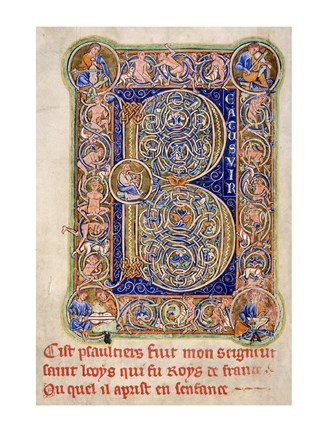 B
EATUS VIR
Cist psaultiers fuit mon seigneur
saint looys qui fu roys de france
Ou quel il aprist en senfance